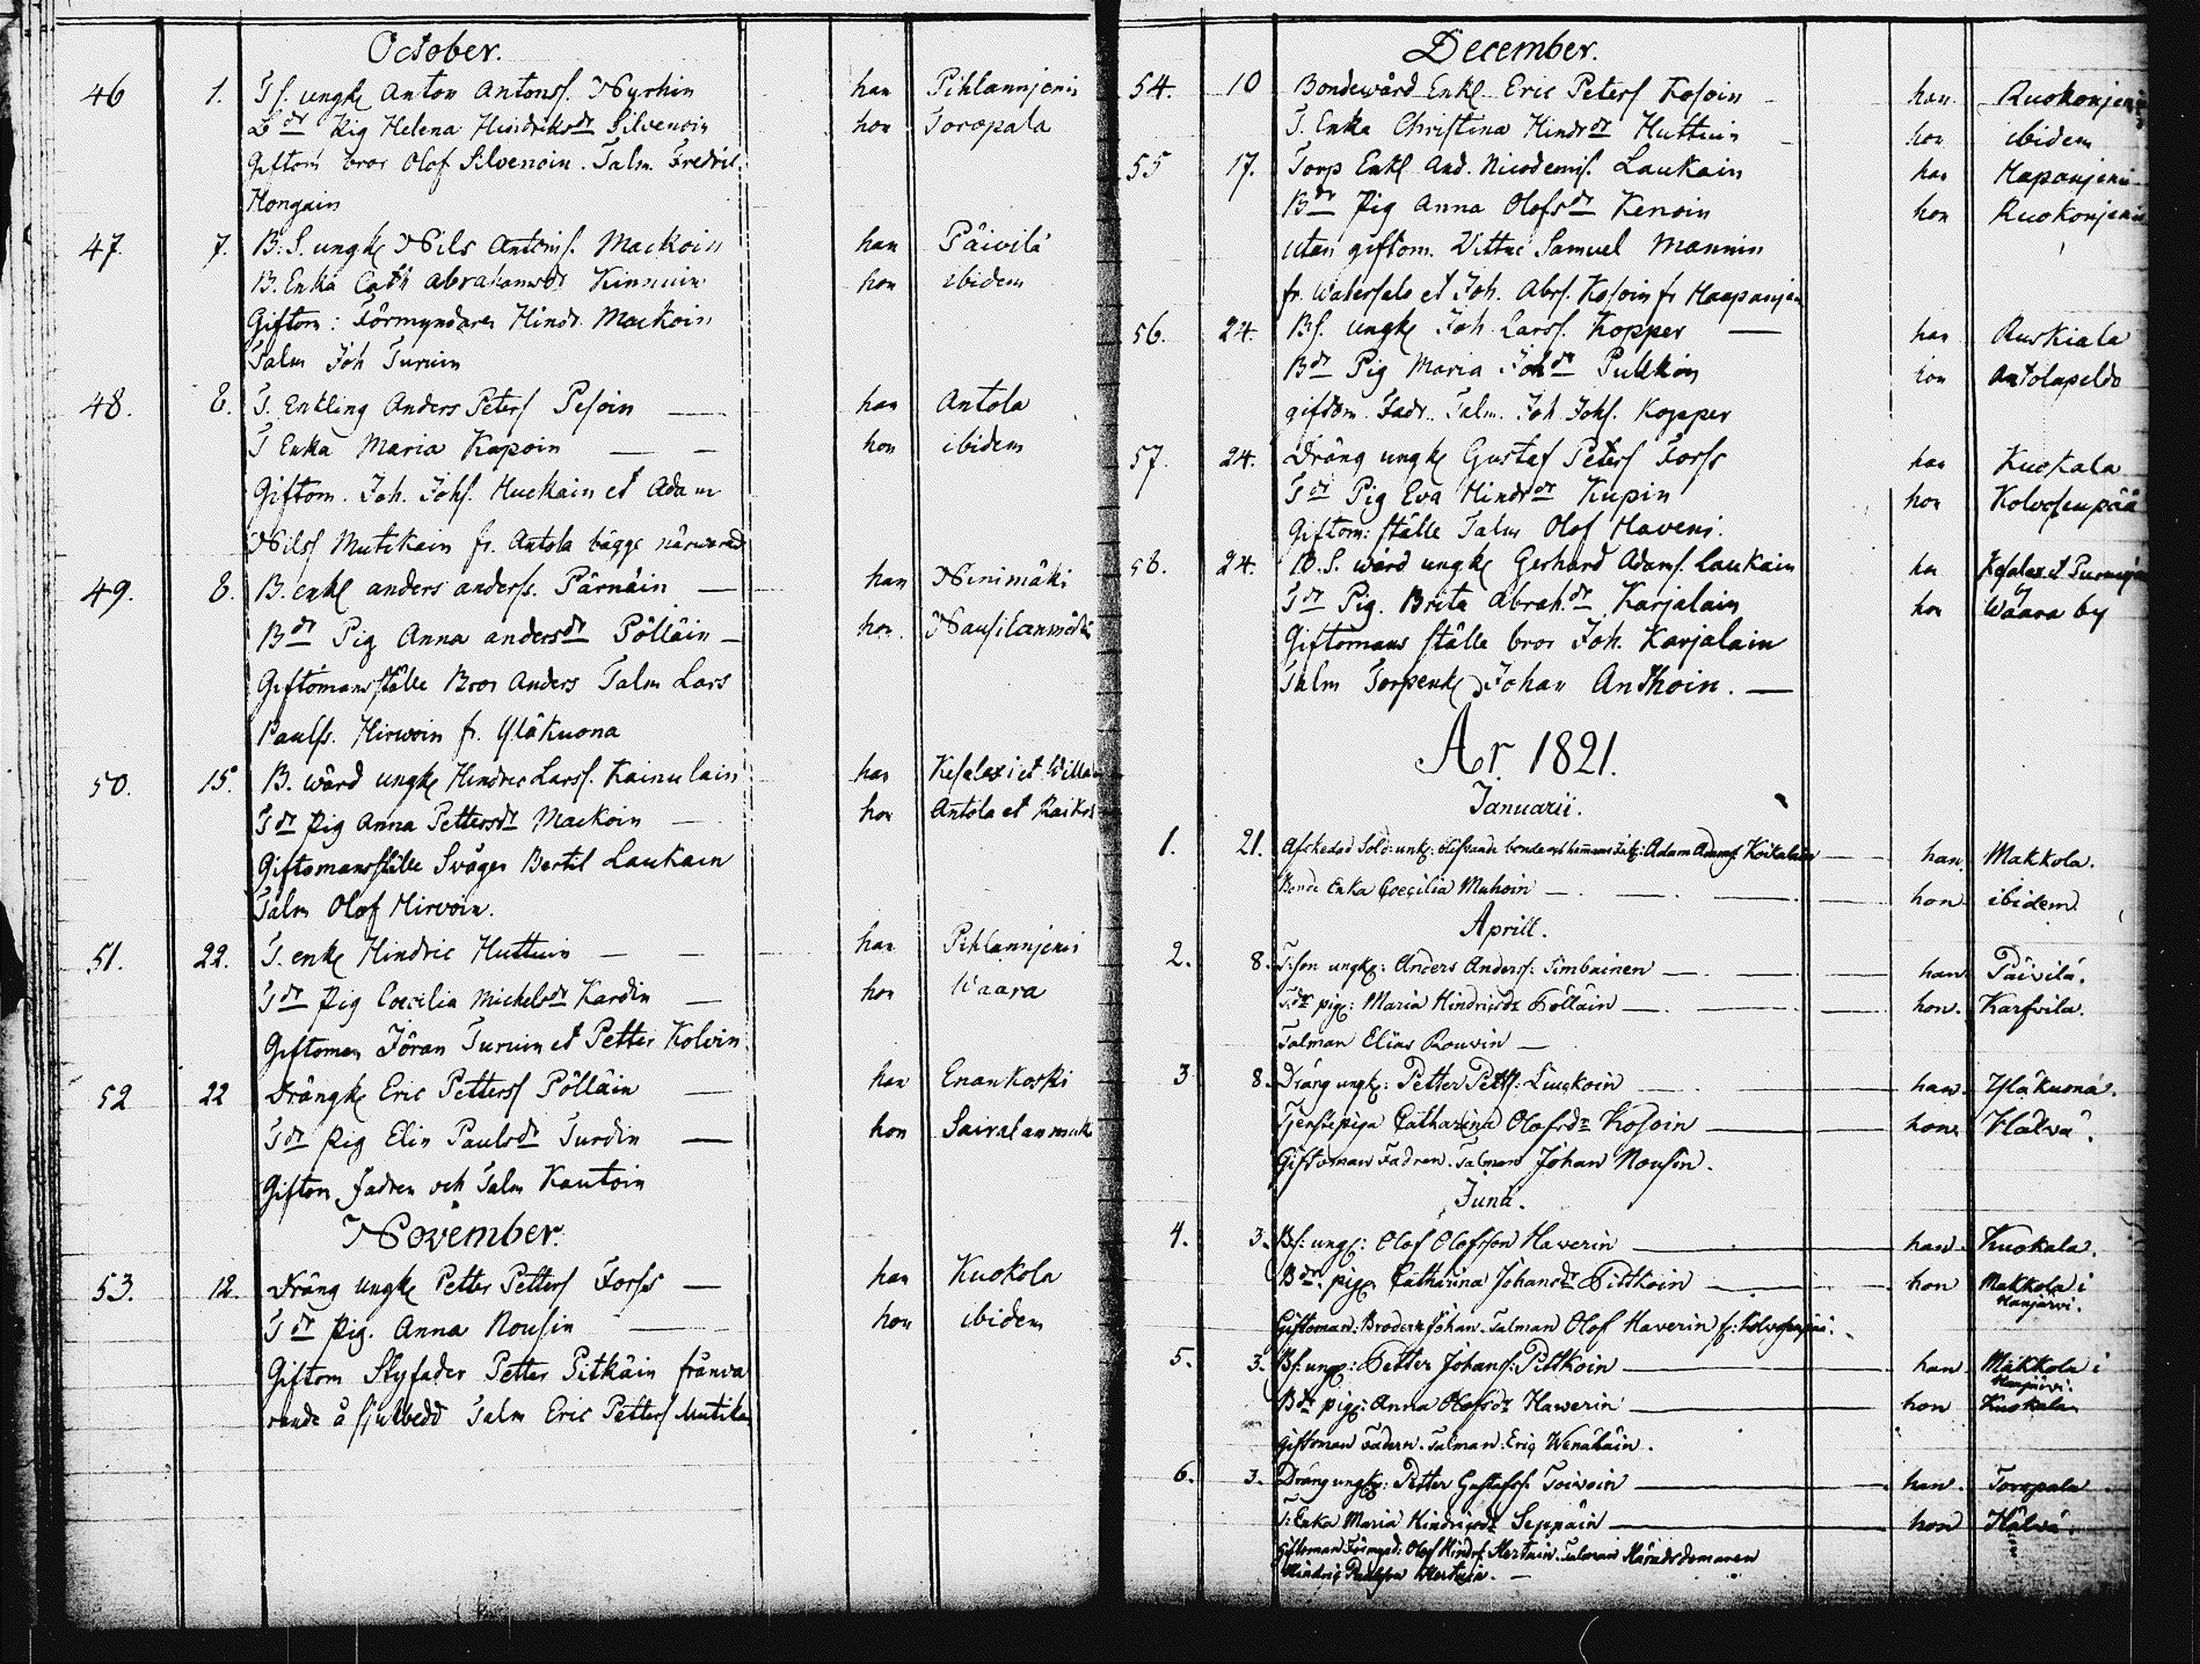 October.
46 1. T s. ungk Anton Antonss. Nyrhin han Pihlannjemi
L dr Pig Helena Hindriksdr Silvenoin hon Toropala
Giftom bror Olof Silvenoin. Talm. Fredric
Hongain
47. 7. B: S. ungk Nils Antonss. Mackoin han Päivilä
B. Enka Cath Abrahamsdr Kinnuin hon ibidem
Giftom: Förmyndaren Hindr. Mackoin
Talm Joh Turuin
48. 8. T. Enkling Anders Peters Pesoin — han Antola
T Enka Maria Kapoin — — hon ibidem
Giftom. Joh. Johs. Huckain et Adam
Nilss Mutikain fr. Antola bägge närwarad
49. 8. B. enkl anders anderss. Pärnäin — han Ninimäki
B dr Pig Anna andersdr Pölläin — hon. Nausilanmäki
Giftomansställe Bror Anders Talm Lars
Paulss. Hirwoin fr. Yläkuona
50. 15. B. wärd ungk Hindric Larss. Kainulain han Kesalax i et Willa
T dr Pig Anna Pettersdr Mackoin — hon Antola et Raikos
Giftomansställe Svåger Bertil Laukain
Talm Olof Hirvoin.
51. 22. T. enk Hindric Huttuin — — han Pihlannjemi
T dr Pig Coecilia Michelsdr Kardin — hon Waara
Giftomen Jöran Turuin et Petter Kolvin
52 22 Drängk Eric Petterss Pölläin — han Enankoski
T dr Pig Elin Paulsdr Turdin — hon Sairalanmäk
Giftom fadren och Talm Kautoin
November.
53. 12. Dräng Ungk Petter Petterss Forss — han Kuokola
T dr Pig. Anna Nousin — hon ibidem
Giftom Styfader Petter Pitkäin frånva
rande å sjukbedd Talm Eric Petterss Mutika
December.
54. 10 Bondewärd Enkl Eric Peterss Kosoin han Ruokonjemi
T. Enka Christina Hindrdr Huttuin hon ibidem
55 17. Torp Enkl And. Nicodemss. Laukain han Hapanjemi
B dr Pig Anna Olofsdr Kenoin hon Ruokonjemi
Utan giftom. Vittne Samuel Mannin
fr. Watersalo et Joh. Abrs. Kosoin fr Haapanjem
56. 24. Bs. ungk Joh Larss. Kopper — han Ruskiala
B dr Pig Maria Johdr Pulkkin hon Antolapeldo
giftom. Fadr. Talm. Joh Johs. Kopper
57. 24. Dräng ungk Gustaf Peters Forss han Kuokala
T dr Pig Eva Hindrdr Kupin hon Kolvosenpää
Giftom: ställe Talm Olof Haveni.
58. 24. B. S. wärd ungk Gerhard Adams. Laukain han Kesalax et
T dr Pig. Brita Abrah.dr Karjalain hon Waara by
Giftomans ställe bror Joh. Karjalain
Talm Torpenk Johan Anthoin. —
År 1821.
Januarii.
1. 21. Afskedad Sold: unk: Adam Adamss Koikalain — han Makkola.
Bonde Enka Coecilia Muhoin — hon ibidem.
Aprill.
2. 8. T: son ungk: Anders Anderss: Simbainen — han Päivilä.
T: dr pig: Maria Hindricsdr Pölläin — hon. Karfvila.
Talman Elias Rouvin —
3 8. Dräng ungk: Petter Petts: Luuckoin han Yläkuona.
Tjenstepiga Catharina Olofsdr Kosoin — hon. Hälvä.
Giftoman Fadren. Talman Johan Nousin.
Junii.
4. 3. Bs: ungk: Olof Olofsson Haverin — han Kuokala.
B dr. piga Catharina Johansdr Pittkoin — hon Makkola i
Hanjärvi.
Giftoman: Brodern Johan. Talman Olof Haverin fr: Kolvosenpää.
5. 3. Bs: ungk: Petter Johans: Pittkoin — han Makkola i
Hanjärvi.
B dr pig: Anna Olofsdr Hawerin — hon Kuokala
Giftoman Fadern. Talman: Eric Wenäläin.
6. 3. Dräng ungk: Petter Gustafss. Toivoin — han. Toropala
T: Enka Maria Hindricsdr Seppäin — hon Hälvä.
Giftoman Förmynd: Olof Hindrs Kertuin. Talman Häradsdomaren
Hindric Kertuin. —